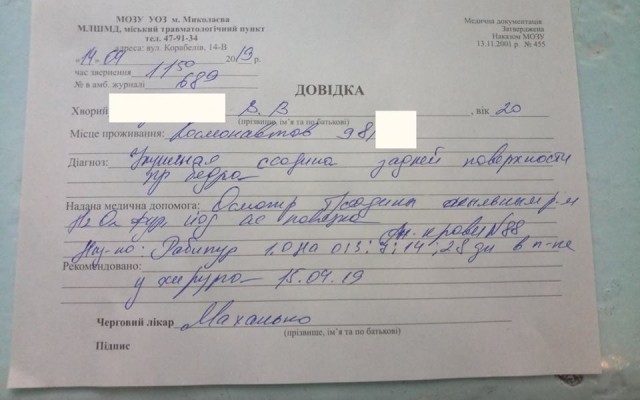 МОЗУ УОЗ м. Миколаєва
МЛШМД, міський травматологічний пункт
тел. 47-91-34
адреса: вул. Корабелів, 14-В
Медична документація
Затверджена
Наказом МОЗУ
13.11.2001 р. № 455
« 14 » 04 2019 р.
час звернення 11 50
№ в амб. журналі 689
ДОВІДКА
Хворий В. В , вік 20
(прозвище, ім'я та по батькові)
Місце проживання: Космонавтов 98/
Діагноз: Укушенная ссадина задней поверхности
пр бедра
Надана медична допомога: Осмотр
H2O2 йод ас повязка
Рабипур 1.0 на 0; 3; 7; 14; 28
Рекомендовано:
у хирурга 15.04.19
Черговий лікар Маханько
(прізвище, ім'я та по батькові)
Підпис